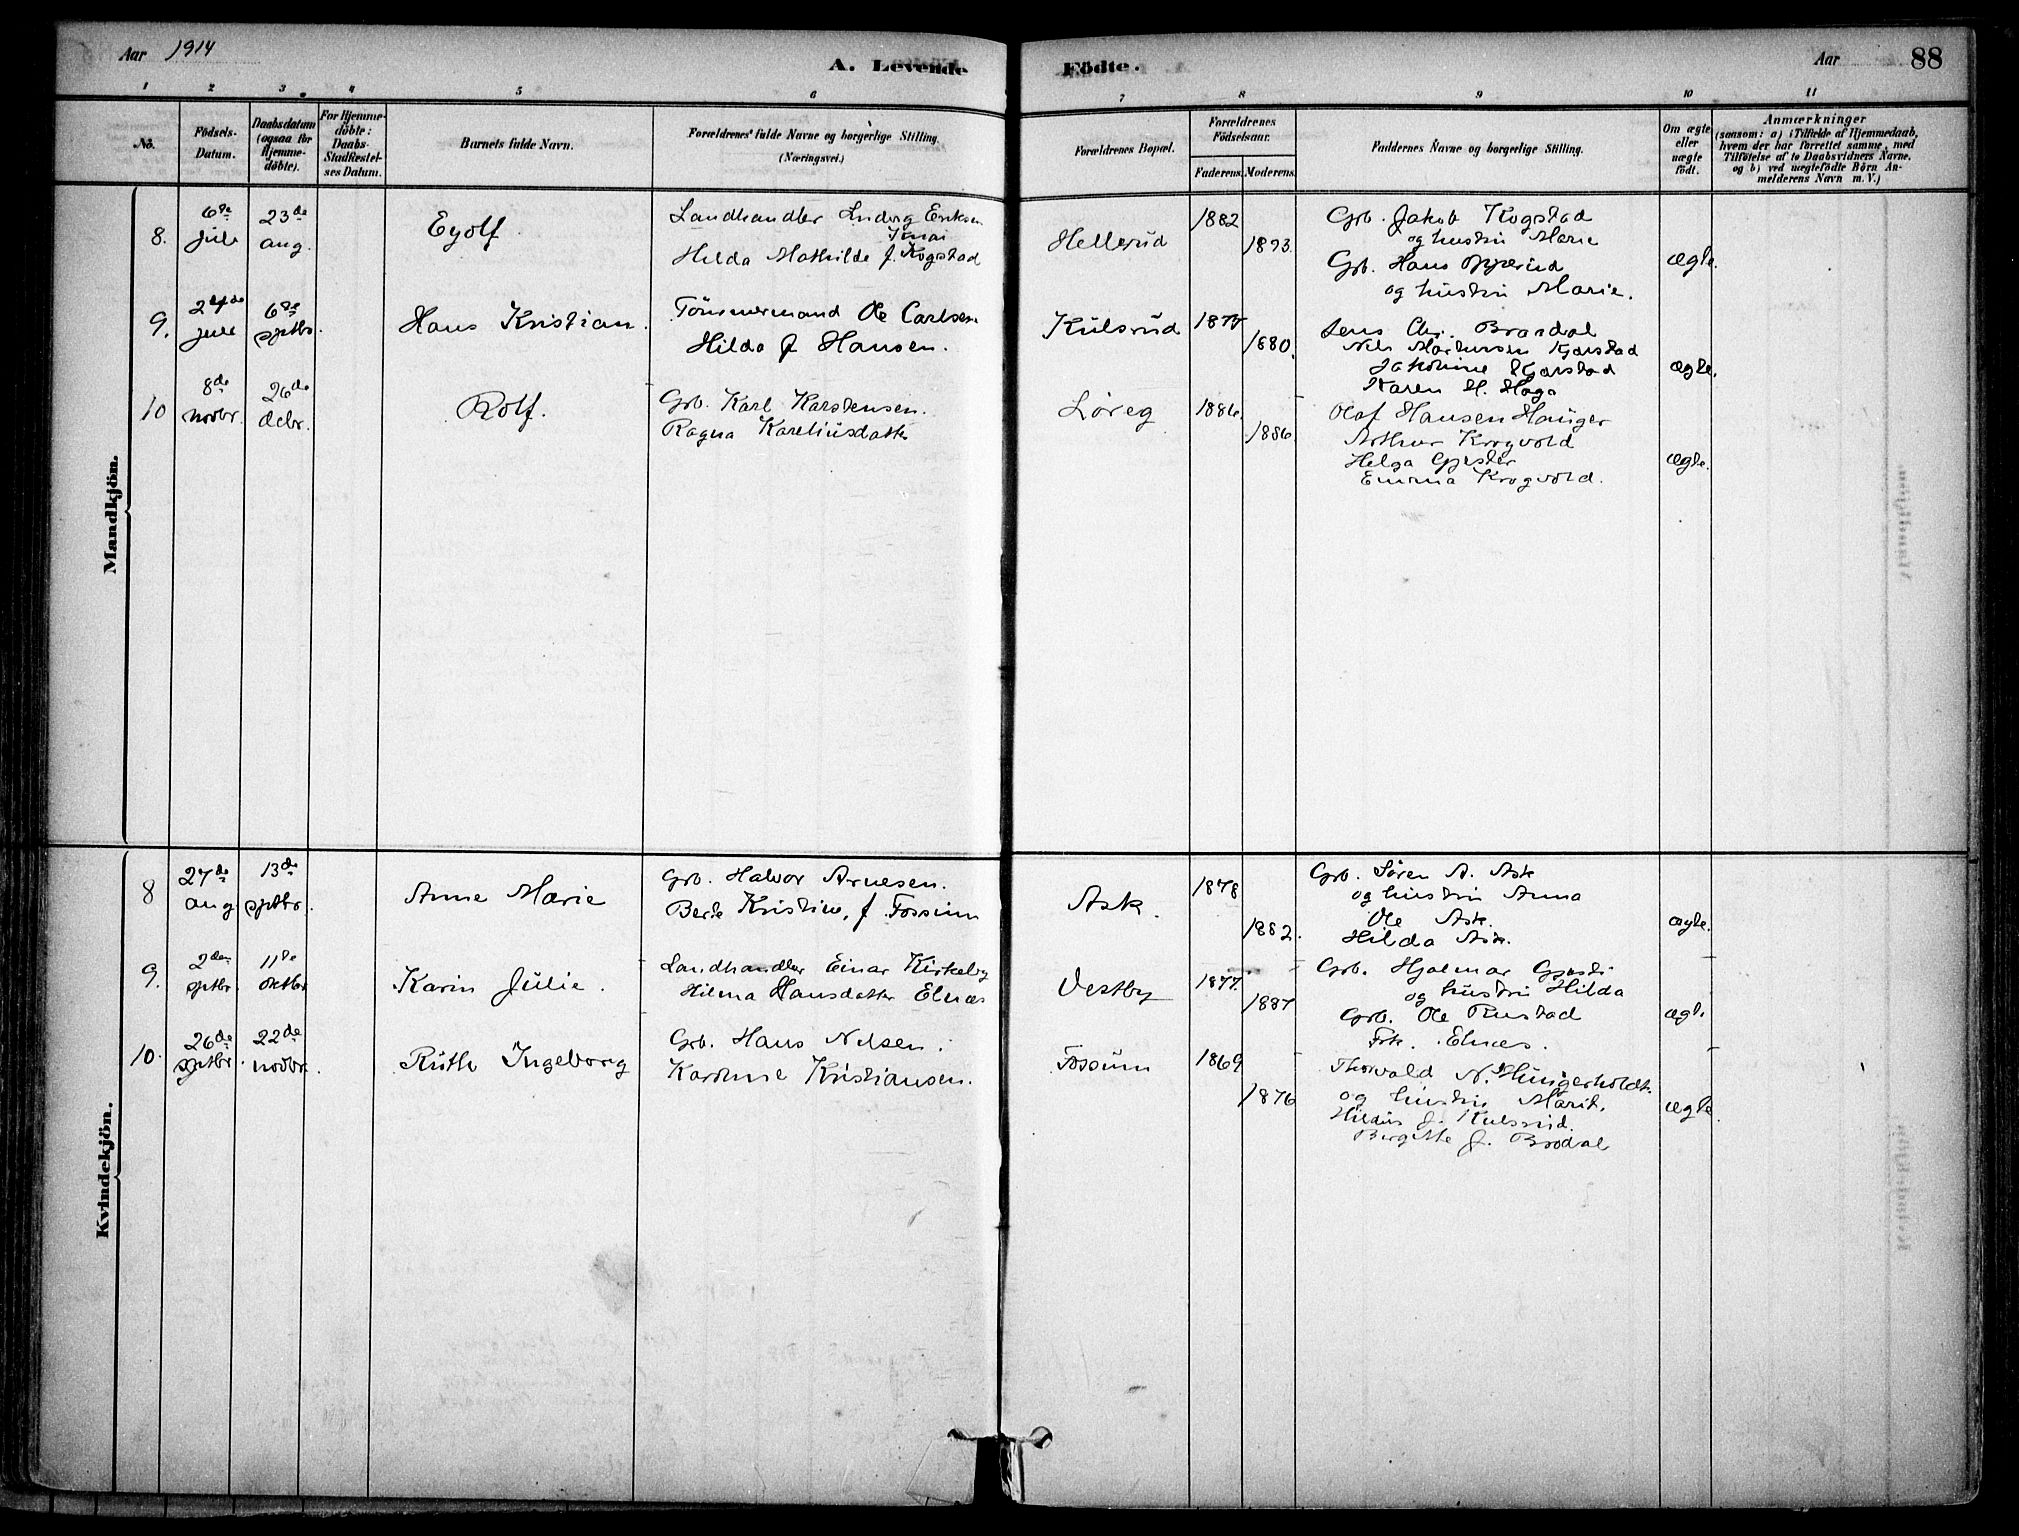 Aar 1914
A. Levende Födte.
Aar 88
1 2 3 4 5 6 7 8 9 10 11
No.
Födsels-Datum.
Daabsdatum (ogsaa for Hjemme-döbte).
For Hjemme-döbte: Daabs-Stadfæstel-ses Datum.
Barnets fulde Navn.
Forældrenes fulde Navne og borgerlige Stilling.
(Næringsvei.)
Forældrenes Bopæl.
Forældrenes Födselsaar.
Faderens. Moderens.
Faddernes Navne og borgerlige Stilling.
Om ægte eller uægte födt.
Anmærkninger
(saasom: a) i Tilfælde af Hjemmedaab,
hvem der har forrettet samme, med
Tilföielse af to Daabsvidners Navne.
og b) ved uægtefödte Börn An-
melderens Navn m. V.)
Mandkjön.
8. 6te jule 23de aug. Eyolf. Landhandler Ludvig Eriksen
Hilda Mathilde f. Kogstad
Hellerud 1882 1893.
Grb. Jakob Kogstad
og hustru Marie
Grb. Hans Opperud
og hustru Marie.
ægte.
9. 24de jule 6te sptbr. Hans Kristian. Tömmermand Ole Carlsen
Hilda f Hansen.
Kulsrud 1875 1880.
Jens Chr. Brandval
Nils Mortensen Kjærstad
Jakobine Kjærstad
Karen H. Haga
ægte.
10 8de novbr. 26de debr. Rolf. Grb. Karl Karstensen.
Ragna Kareliusdatter
Löreg 1886. 1886
Olaf Hansen Hauger
Arthur Krogvold
Helga Gjester
Emma Krogvold.
ægte.
Kvindekjön.
8 27de aug 13de sptbr. Anne Marie Grb. Halvor Arnesen.
Berte Kristine, f. Fossum
Ask. 1878 1882.
Grb. Sören A. Ask
og hustru Anna
Ole Ask.
Hilda Ask.
ægte.
9. 2den sptbr. 11te oktbr Karin Julie. Landhandler Einar Kirkeby
Hilma Hansdatter Elnæs
Vestby 1877. 1887
Grb. Hjalmar
og hustru Hilda
Grb. Ole Rustad
Frk. Elnæs.
ægte.
10. 26de sptbr. 22de novbr. Ruth Ingeborg Grb. Hans Nilsen.
Karoline Kristiansen.
Fossum 1869 1876
Thorvald N. Hungerholdt
og hustru Marit.
f. Kulsrud.
Birgitte f. Brodal
ægte